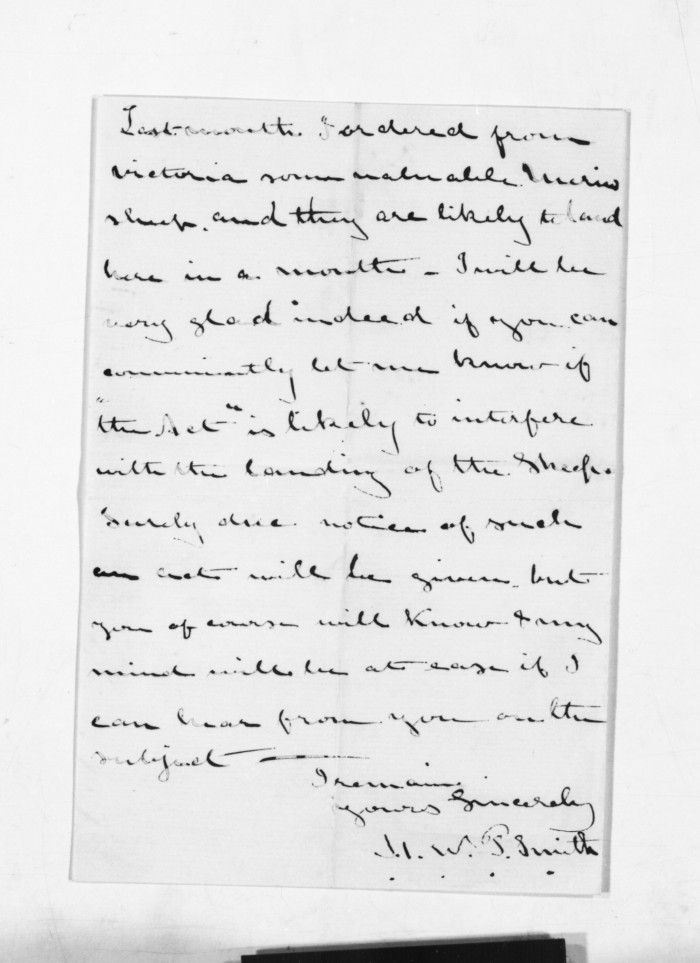 Last month I ordered from
Victoria some valuable Merino
sheep, and they are likely to land
here in a month - I will be
very glad indeed if you can
conveniently let me know if
"the Act" is likely to interfere
with the landing of the Sheep.
Surely due notice of such
an act will be given, but
you of course will know & my
mind will be at ease if I
can hear from you on the
subject —
I remain
Yours Sincerely
W. P. Smith